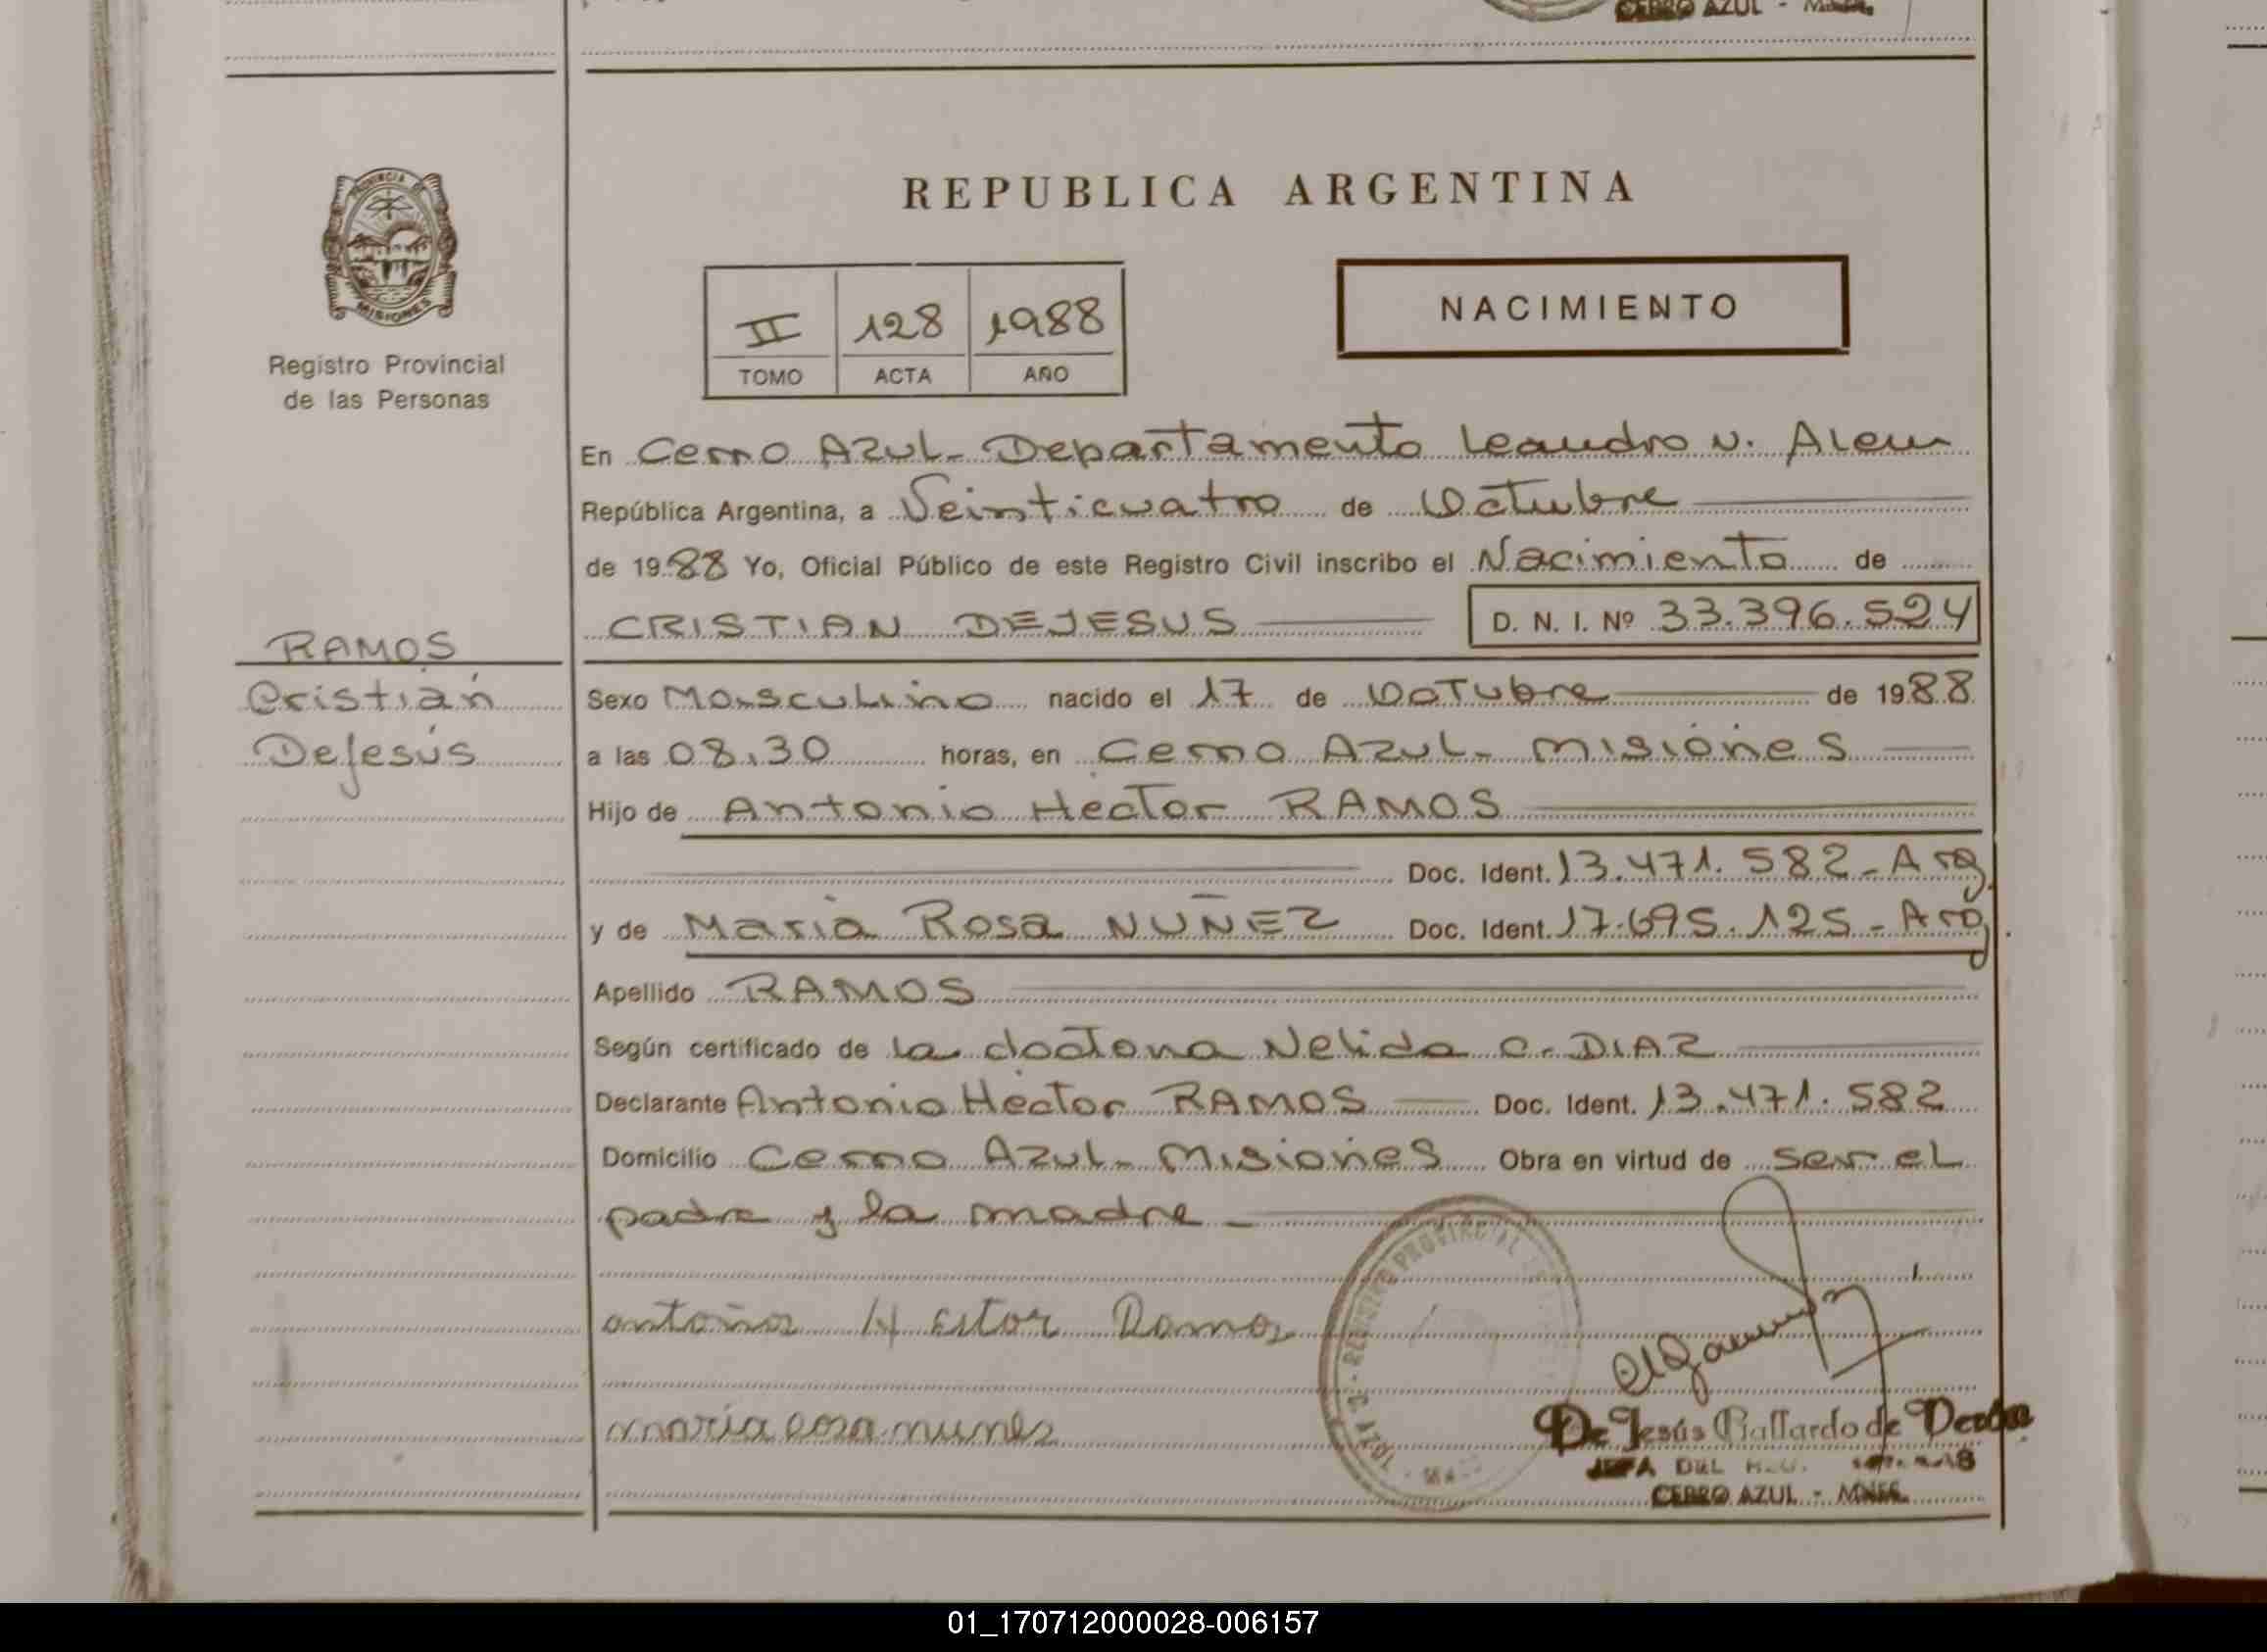 CERRO AZUL - Mnes.
PROVINCIA DE
MISIONES
Registro Provincial
de las Personas
REPUBLICA ARGENTINA
II 128 1988
TOMO ACTA AÑO
NACIMIENTO
En Cerro Azul - Departamento Leandro N. Alem
República Argentina, a Veinticuatro de Octubre
de 1988 Yo, Oficial Público de este Registro Civil inscribo el Nacimiento de
CRISTIAN DEJESUS D. N. I. Nº 33.396.524
RAMOS
Cristian
Dejesús
Sexo Masculino nacido el 17 de Octubre de 1988
a las 08,30 horas, en Cerro Azul - Misiones
Hijo de Antonio Hector RAMOS
Doc. Ident. 13.471.582 - Arg.
y de Maria Rosa NUÑEZ Doc. Ident. 17.695.125 - Arg.
Apellido RAMOS
Según certificado de la doctora Nelida C. DIAZ
Declarante Antonio Hector RAMOS Doc. Ident. 13.471.582
Domicilio Cerro Azul - Misiones Obra en virtud de ser el
padre y la madre -
antonio Hector Ramos
maria rosa nunes
REGISTRO PROVINCIAL
C. AZUL
De Jesús Gallardo de
JEFA DEL REG.
CERRO AZUL - MNES.
01_170712000028-006157